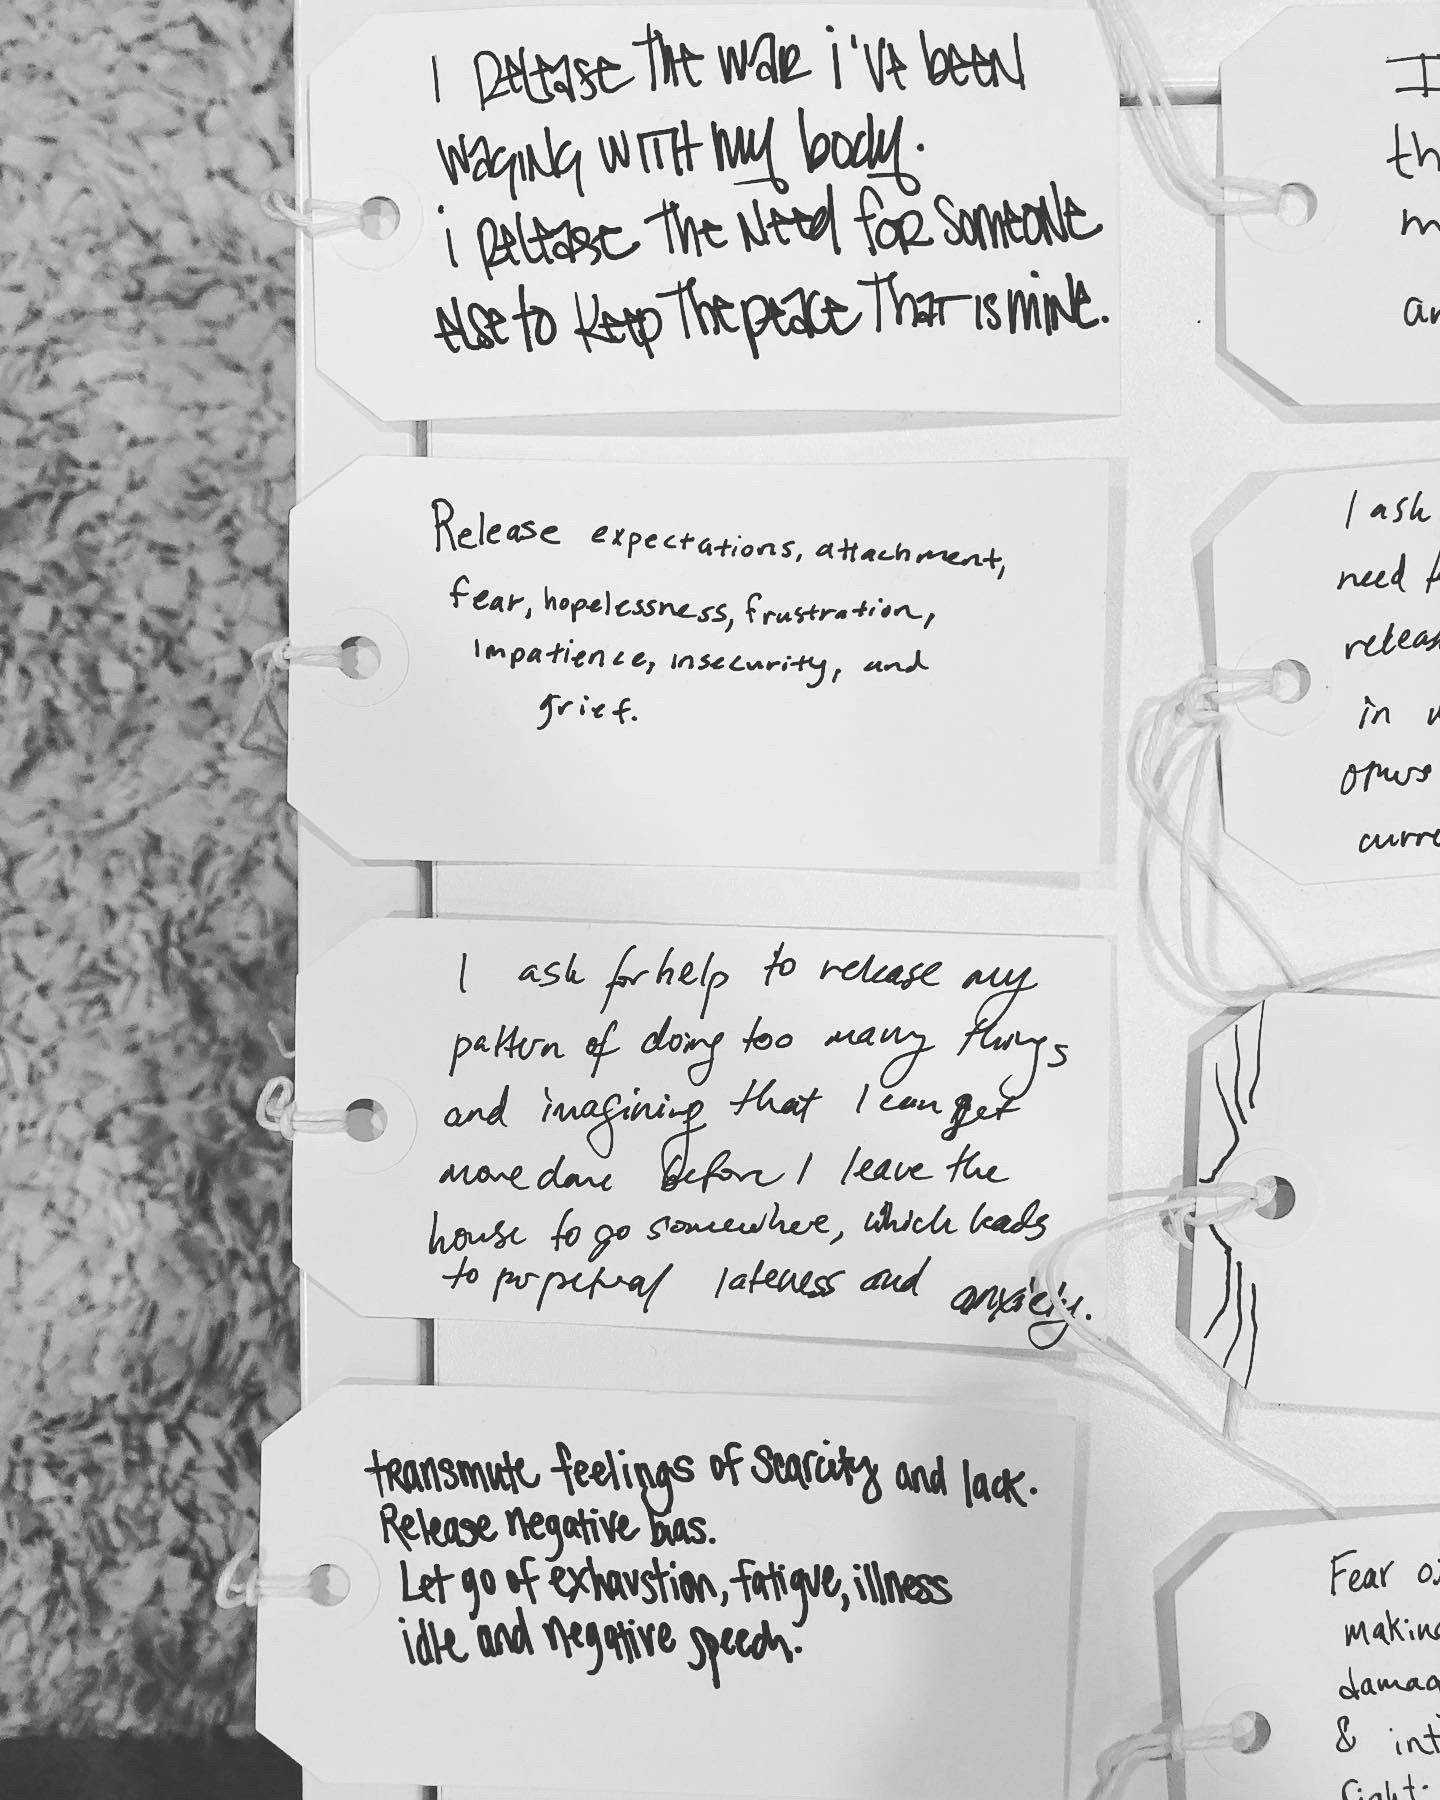 I release the war i've been
waging with my body.
i release the need for someone
else to keep the peace that is mine.
Release expectations, attachment,
fear, hopelessness, frustration,
impatience, insecurity, and
grief.
I ask for help to release my
pattern of doing too many things
and imagining that I can get
more done before I leave the
house to go somewhere, which leads
to perpetual lateness and anxiety.
transmute feelings of scarcity and lack.
Release negative bias.
Let go of exhaustion, fatigue, illness
idle and negative speech.
I
th
m
an
I ask
need
releas
in
curre
Fear
making
damag
& int